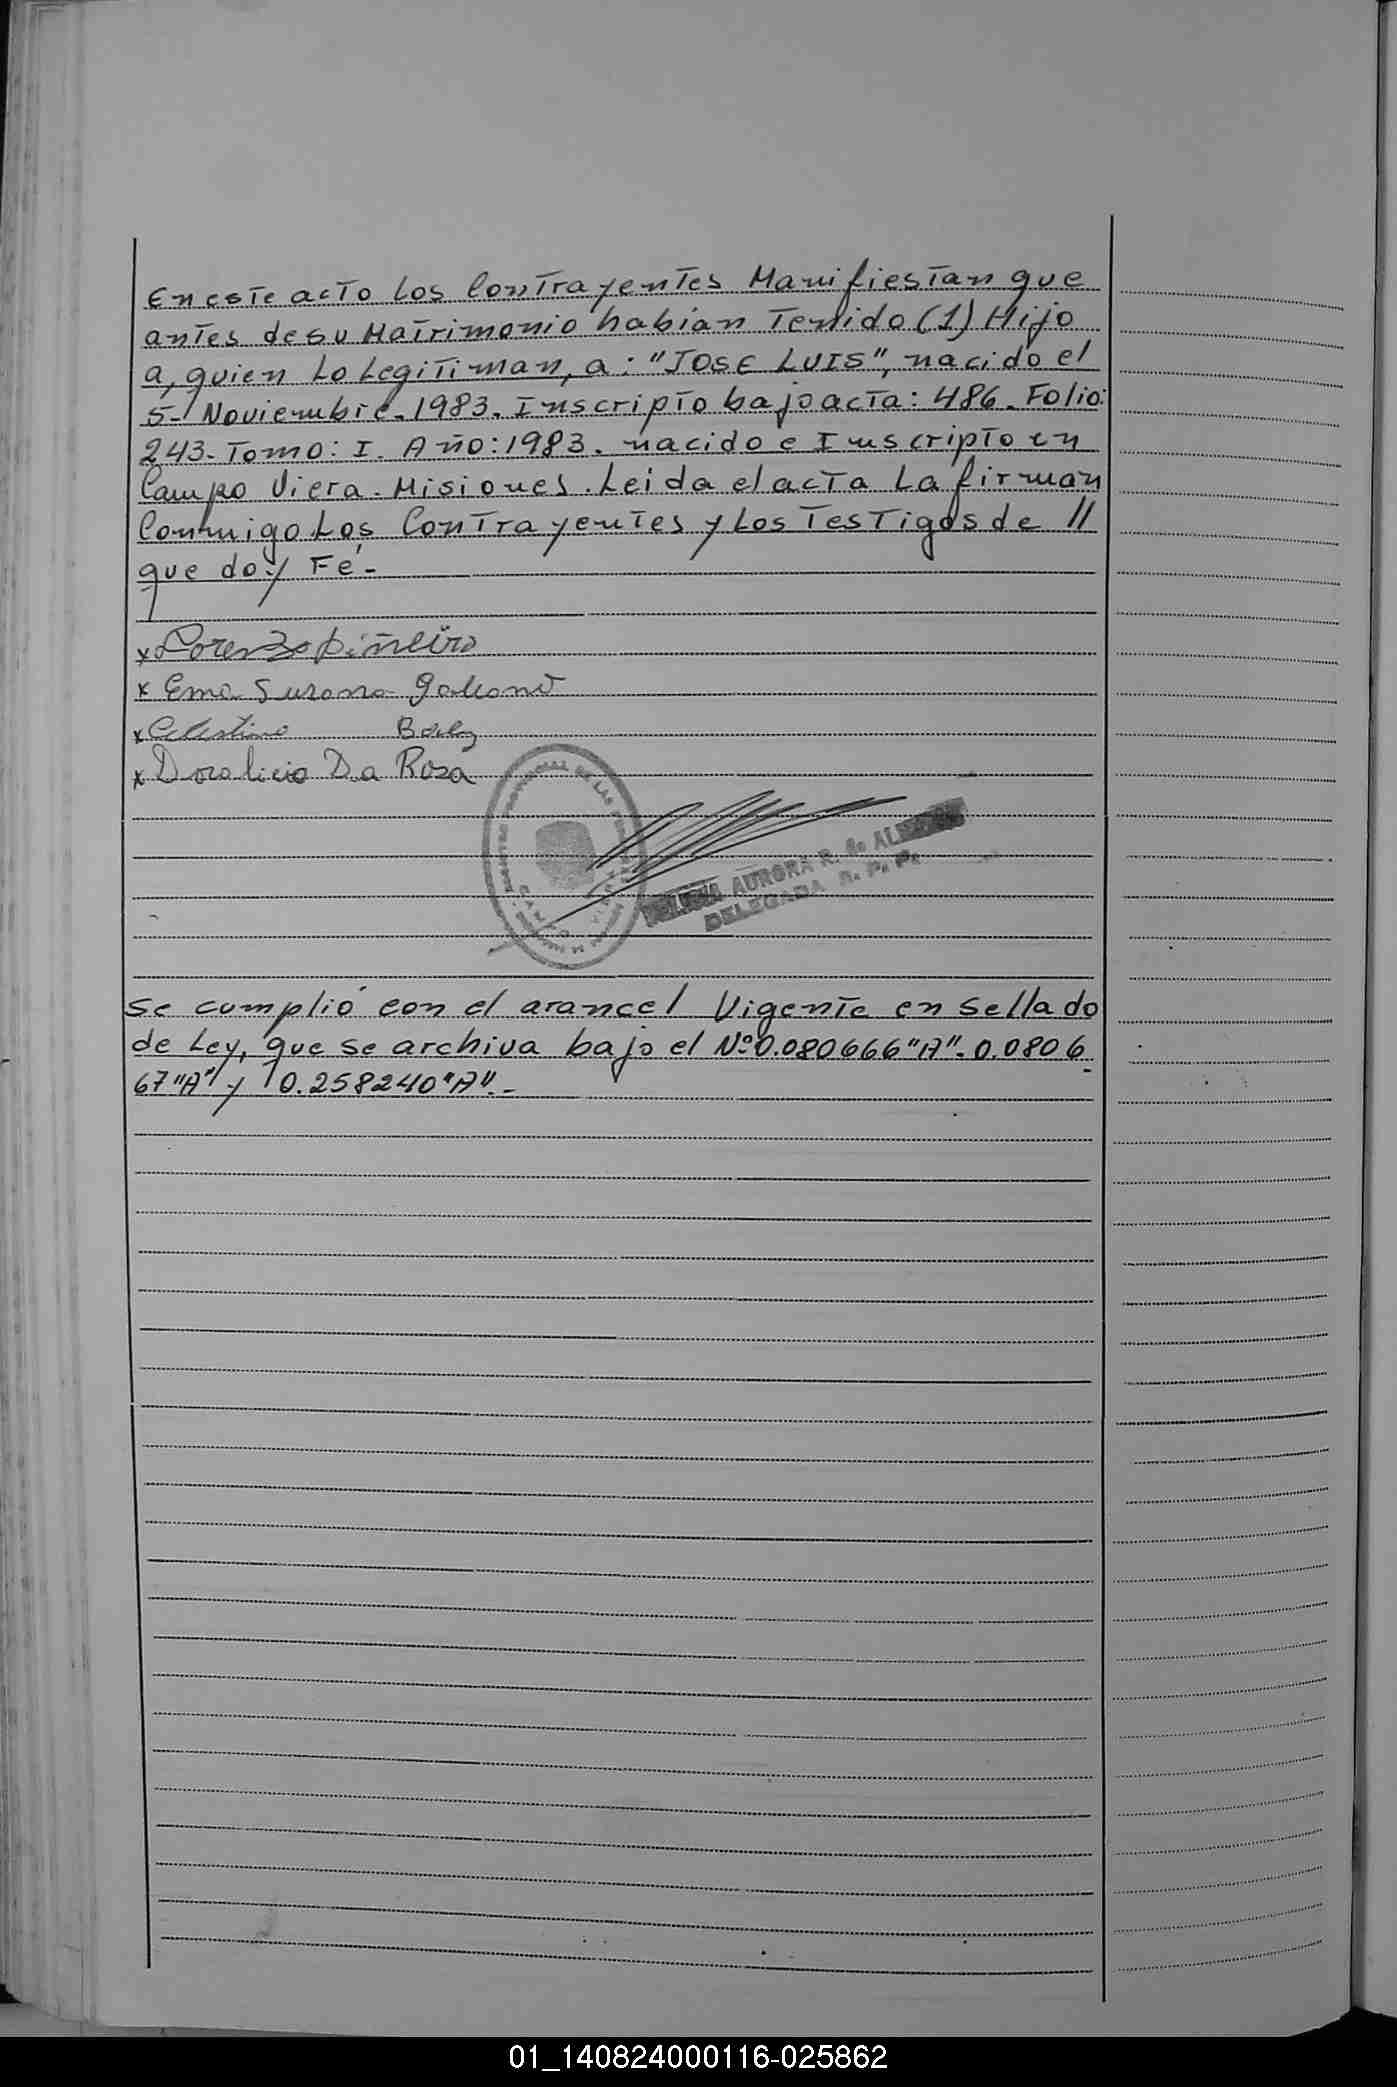 En este acto Los Contrayentes Manifiestan que
antes de su Matrimonio habian Tenido (1) Hijo
a, quien Lo Legitiman, a: "JOSE LUIS", nacido el
5- Noviembre. 1983. Inscripto bajo acta: 486. Folio:
243. Tomo: I. Año: 1983. nacido e Inscripto en
Campo Viera. Misiones. Leida el acta La firman
Conmigo Los Contrayentes y Los Testigos de //
que doy Fé.-
x Lorenzo piñeiro
x Ema Susana galeano
x Celestino
x Doralicio Da Rosa
REGISTRO PROVINCIAL DE LAS PERSONAS
CAMPO VIERA
AURORA R. de
DELEGADA R. P. P.
Se cumplió con el arancel Vigente en Sellado
de Ley, que se archiva bajo el Nº 0.080666 "A". 0.0806
67 "A" y 0.258240 "A".-
01_140824000116-025862